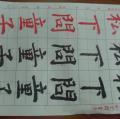 松下問童子
松下問童子
松下問童子